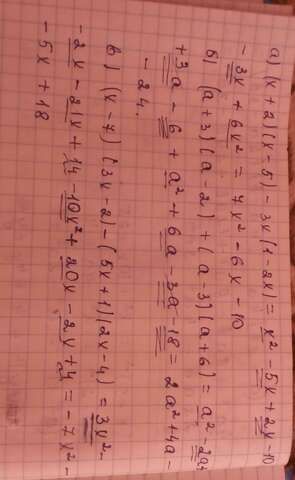 а) (x+2)(x-5)-3x(1-2x)=x²-5x+2x-10
-3x+6x²=7x²-6x-10
б) (a+3)(a-2)+(a-3)(a+6)=a²-2a+
+3a-6+a²+6a-3a-18=2a²+4a-
-24.
в) (x-7)(3x-2)-(5x+1)(2x-4)=3x²-
-2x-21x+14-10x²+20x-2x+4=-7x²-
-5x+18